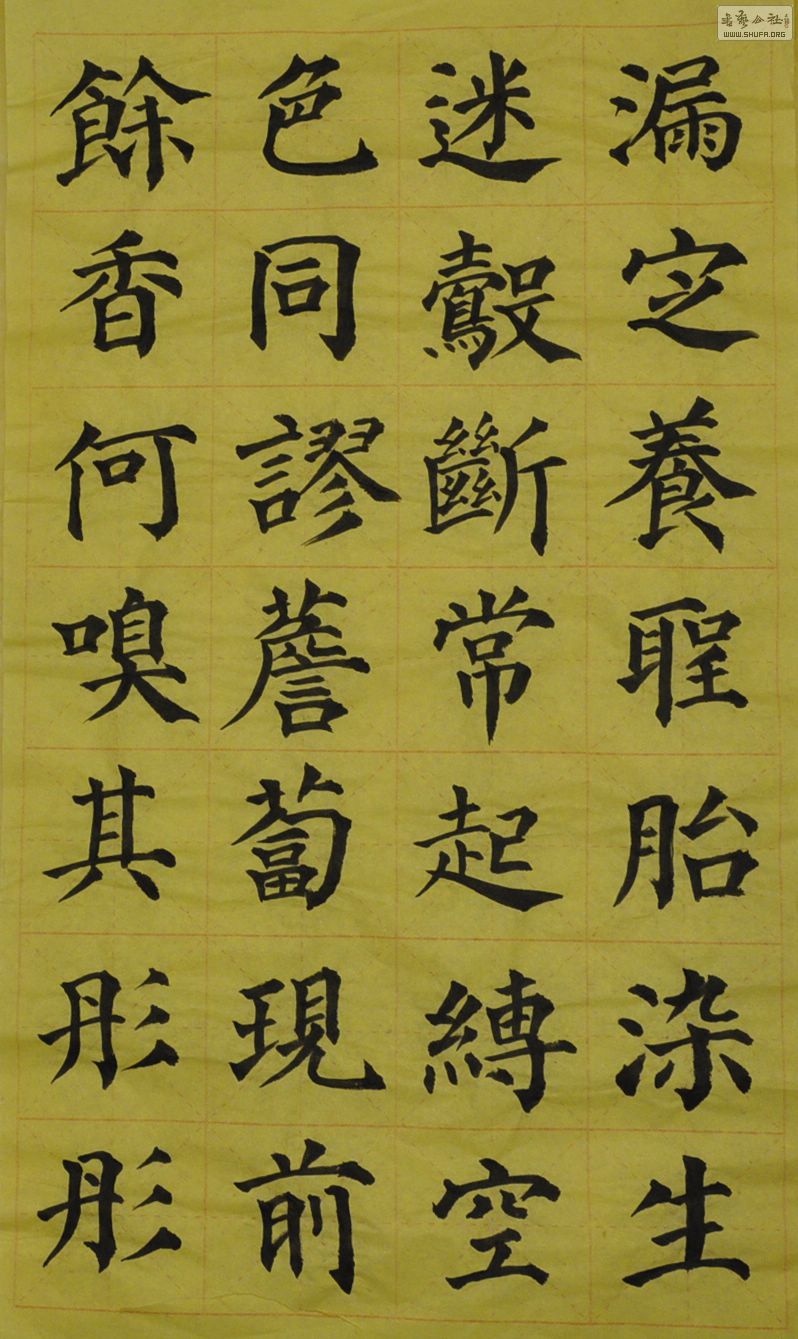 漏定養聖胎染生
迷鷇斷常起縛空
色同謬薝蔔現前
餘香何嗅其彤彤
書藝公社
WWW.SHUFA.ORG